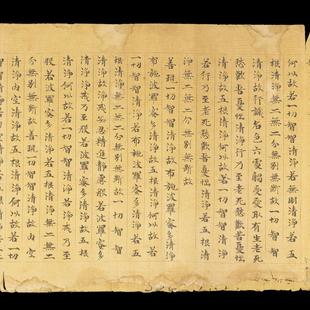 何以故若一切智智清淨若無明清淨若五
根清淨無二無二分無別無斷故一切智智
清淨故行識名色六處觸受愛取有生老死
愁歎苦憂惱清淨行乃至老死愁歎苦憂惱
清淨故五根清淨何以故若一切智智清淨
若行乃至老死愁歎苦憂惱清淨若五根清
淨無二無二分無別無斷故
善現一切智智清淨故布施波羅蜜多清淨
布施波羅蜜多清淨故五根清淨何以故若
一切智智清淨若布施波羅蜜多清淨若五
根清淨無二無二分無別無斷故一切智智
清淨故淨戒安忍精進靜慮般若波羅蜜多
清淨淨戒乃至般若波羅蜜多清淨故五根
清淨何以故若一切智智清淨若淨戒乃至
般若波羅蜜多清淨若五根清淨無二無二
分無別無斷故善現一切智智清淨故內空
清淨內空清淨故五根清淨何以故若一切